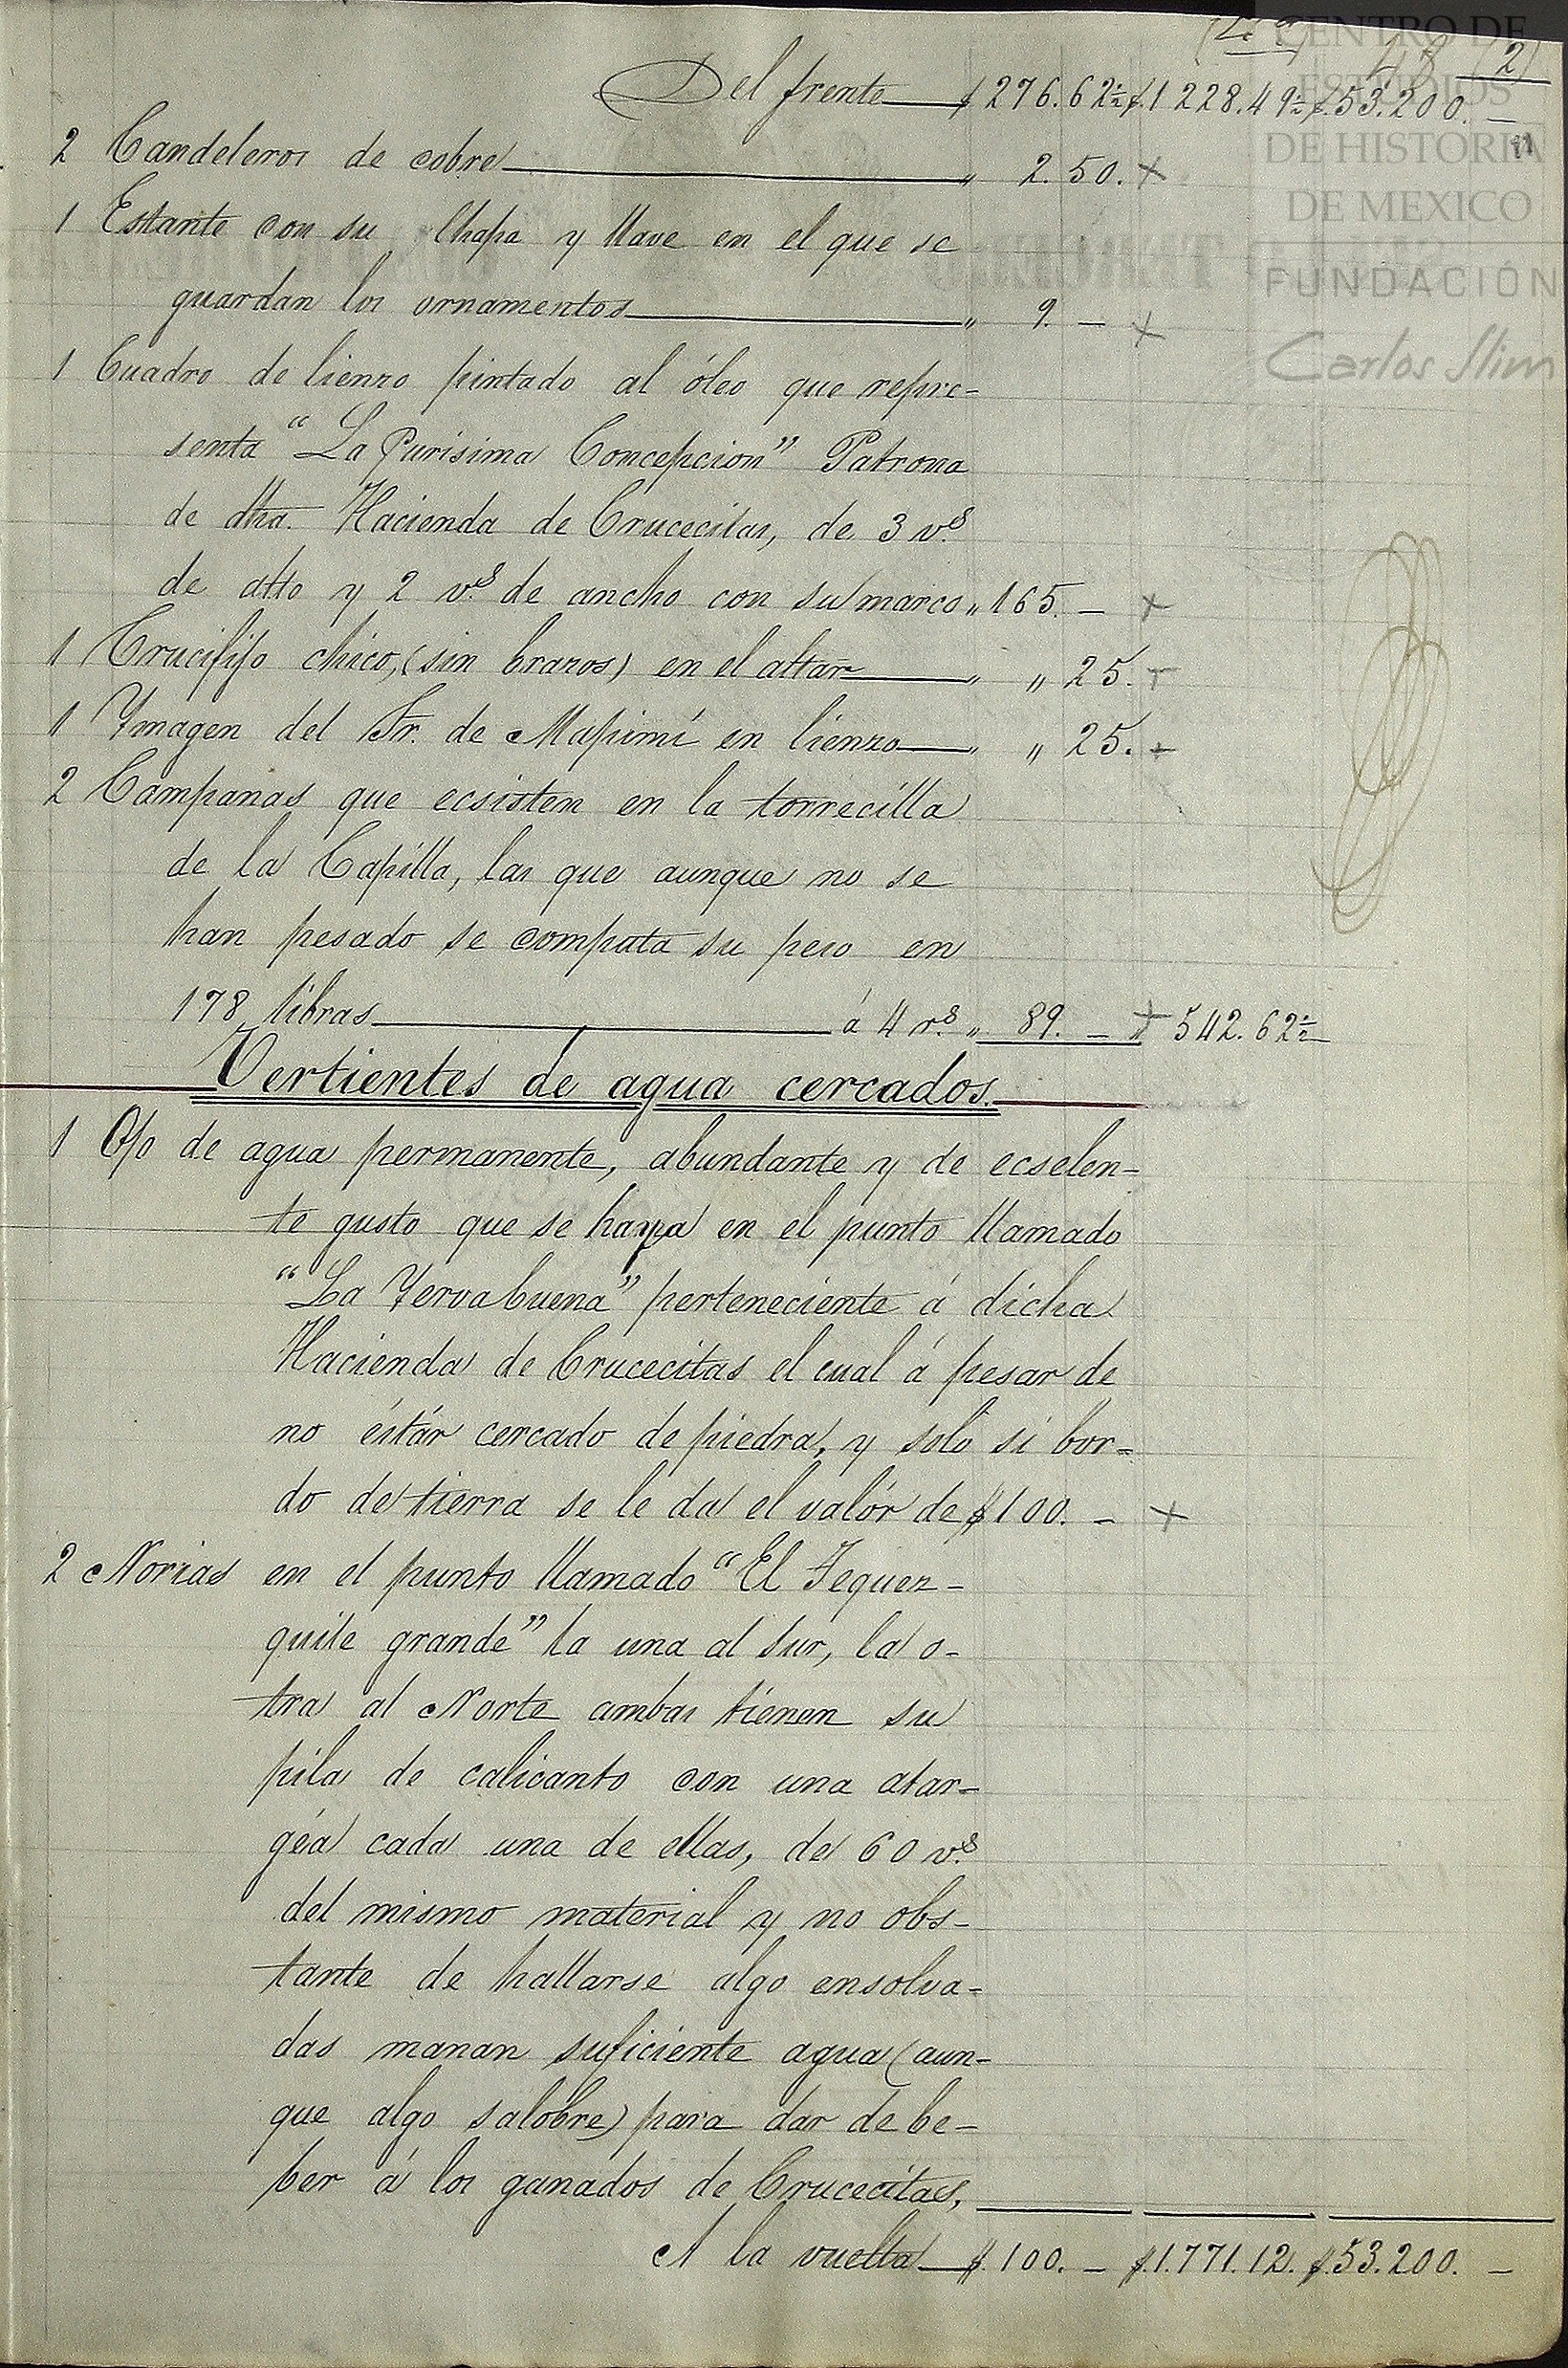 CENTRO DE
ESTUDIOS
DE HISTORIA
DE MEXICO
FUNDACIÓN
Carlos Slim
(2)
Del frente $276.62½ $1228.49½ $53.200. —
2 Candeleros de cobre " 2.50. ×
1 Estante con su Chapa y llave en el que se
guardan los ornamentos " 9. — ×
1 Cuadro de lienzo pintado al óleo que repre-
senta "La Purísima Concepcion" Patrona
de dha. Hacienda de Crucecitas, de 3 vs.
de alto y 2 vs. de ancho con su marco " 165. — ×
1 Crucifijo chico, (sin brazos) en el altar " " 25. -
1 Ymagen del Sr. de Mapimí en lienzo " " 25. -
2 Campanas que ecsisten en la torrecilla
de la Capilla, las que aunque no se
han pesado se computa su peso en
178 libras á 4 rs. " 89. — × 542.62½
Vertientes de agua cercados.
1 Ojo de agua permanente, abundante y de ecselen-
te gusto que se haya en el punto llamado
"La Yervabuena" perteneciente á dicha
Hacienda de Crucecitas el cual á pesar de
no éstár cercado de piedra, y solo si bor-
do de tierra se le da el valór de $100. — ×
2 Norias en el punto llamado "El Tequez-
quite grande" la una al Sur, la o-
tra al Norte ambas tienen su
pila de calicanto con una atar-
géa cada una de ellas, de 60 vs.
del mismo material y no obs-
tante de hallarse algo ensolva-
das manan suficiente agua (aun-
que algo salobre) para dar de be-
ber á los ganados de Crucecitas,
A la vuelta $.100. — $.1.771.12. $.53.200. —